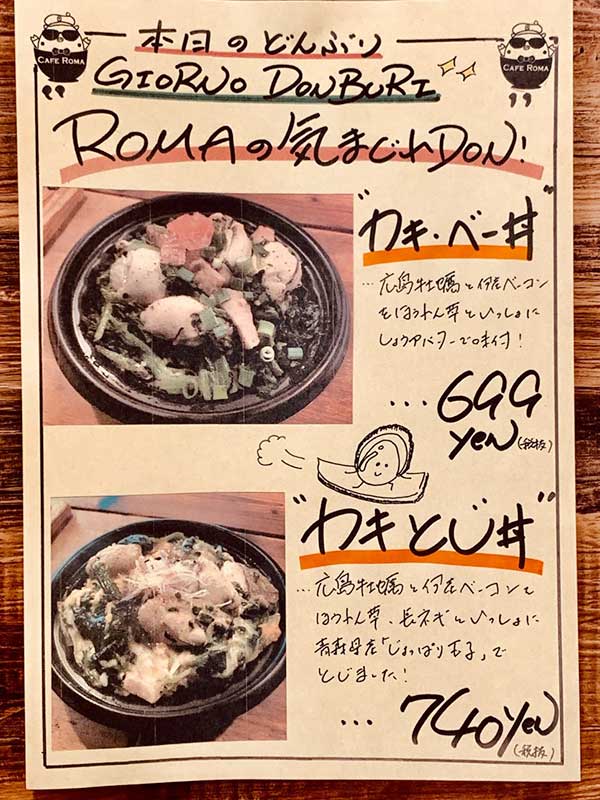 本日のどんぶり
GIORNO DONBURI
CAFE ROMA
CAFE ROMA
ROMAの気まぐれDON!
"カキ・ベー丼"
...広島牡蠣と伊産ベーコン
をほうれん草といっしょに
しょうゆバターで味付!
...699
yen(税抜)
"カキとじ丼"
...広島牡蠣と伊産ベーコンを
ほうれん草、長ネギといっしょに
青森県産「じょっぱり玉子」で
とじました!
...740yen
(税抜)